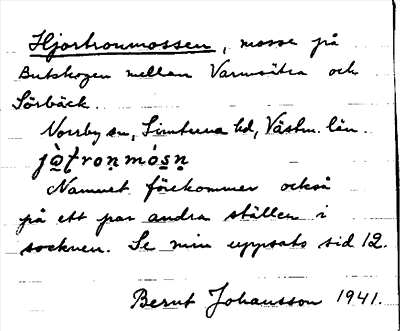 Hjortronmossen, mosse på
Butskogen mellan Varmsätra och
Sörbäck.
Norrby sn, Simtuna hd, Västm. län.
jo̱ṭroṇmósṇ
Namnet förekommer också
på ett par andra ställen i
socknen. Se min uppsats sid 12.
Bernt Johansson 1941.